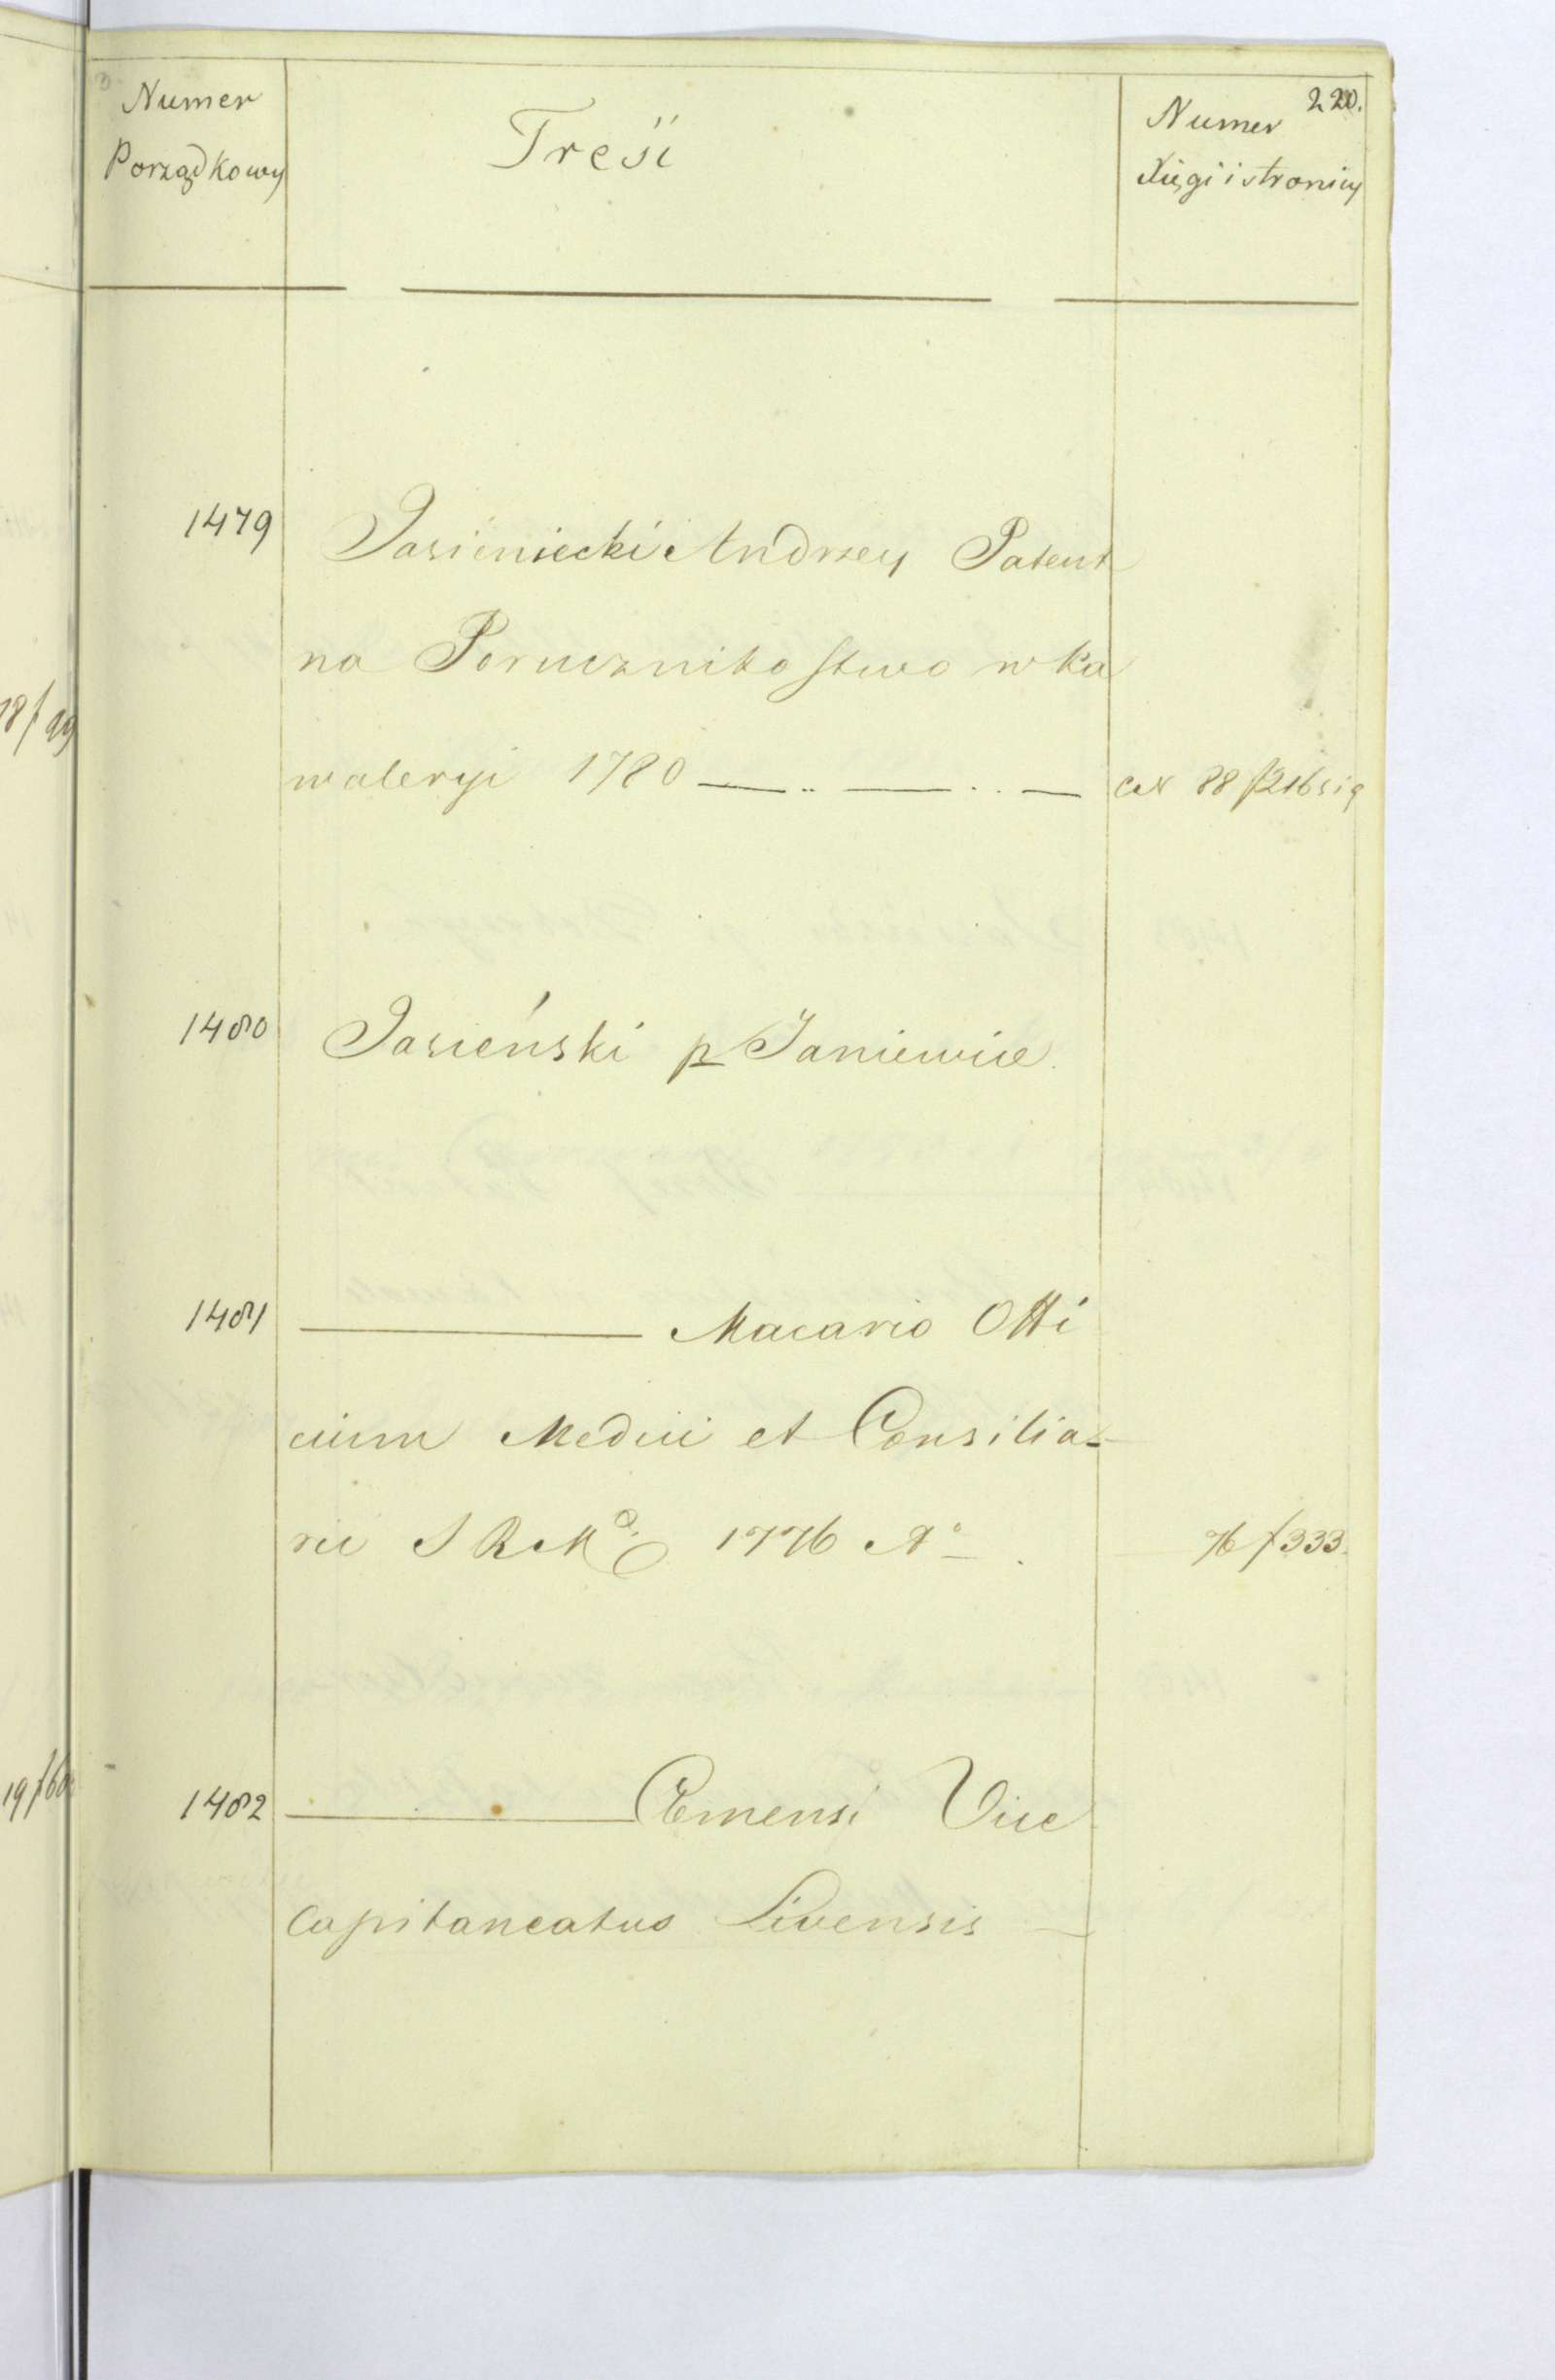 220.
Numer
Porządkowy
Treść
Numer
Xięgi i stronicy
1479
Jasieniecki Andrzey Patent
na Poruczniko stwo w ka
waleryi 1780 — .. — .. —
88 f 216
1480
Jasieński p Janiewice
1481
——— Macario Offi
cium Medici et Consilia-
rii S R M 1776 Aº
76 f 333.
1482
——— Emensi Vice
Capitaneatus Livensis —
18/
19/60